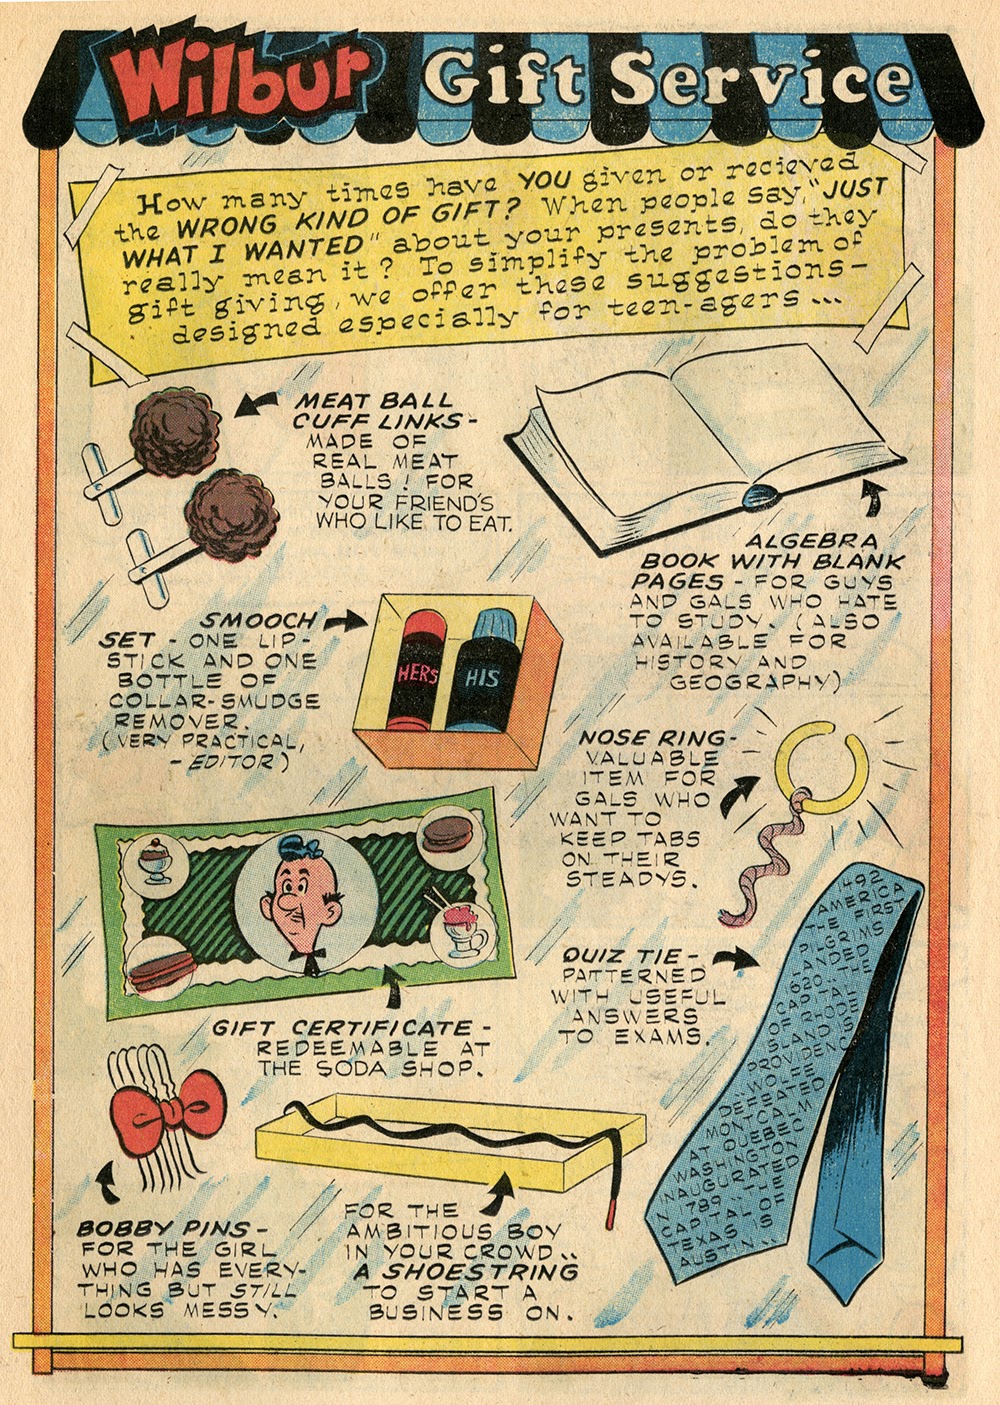 Wilbur Gift Service
How many times have YOU given or recieved
the WRONG KIND OF GIFT? When people say, "JUST
WHAT I WANTED" about your presents, do they
really mean it? To simplify the problem of
gift giving, we offer these suggestions—
designed especially for teen-agers...
MEAT BALL
CUFF LINKS-
MADE OF
REAL MEAT
BALLS! FOR
YOUR FRIEND'S
WHO LIKE TO EAT.
ALGEBRA
BOOK WITH BLANK
PAGES - FOR GUYS
AND GALS WHO HATE
TO STUDY. (ALSO
AVAILABLE FOR
HISTORY AND
GEOGRAPHY)
SMOOCH
SET - ONE LIP-
STICK AND ONE
BOTTLE OF
COLLAR-SMUDGE
REMOVER.
(VERY PRACTICAL,
- EDITOR)
HERS
HIS
NOSE RING-
VALUABLE
ITEM FOR
GALS WHO
WANT TO
KEEP TABS
ON THEIR
STEADYS.
GIFT CERTIFICATE-
REDEEMABLE AT
THE SODA SHOP.
QUIZ TIE-
PATTERNED
WITH USEFUL
ANSWERS
TO EXAMS.
1492
AMERICA
THE FIRST
PILGRIMS
LANDED
1620.. THE
CAPITAL
OF RHODE
ISLAND IS
PROVIDENCE
WOLFE
DEFEATED
MONTCALM
AT QUEBEC
WASHINGTON
INAUGURATED
IN 1789.. THE
CAPITAL OF
TEXAS IS
AUSTIN...
BOBBY PINS-
FOR THE GIRL
WHO HAS EVERY-
THING BUT STILL
LOOKS MESSY.
FOR THE
AMBITIOUS BOY
IN YOUR CROWD..
A SHOESTRING
TO START A
BUSINESS ON.